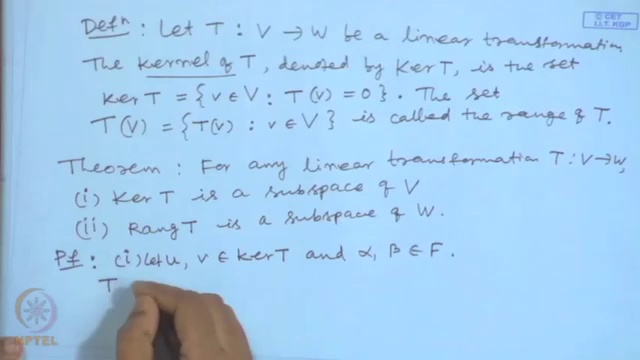 © CET
I.I.T. KGP
Defⁿ : Let T : V → W be a linear transformation
The Kernel of T, denoted by Ker T, is the set
Ker T = {v ∈ V : T(v) = 0}. The set
T(V) = {T(v) : v ∈ V} is called the range of T.
Theorem : For any linear transformation T : V → W,
(i) Ker T is a subspace of V
(ii) Rang T is a subspace of W.
Pf : (i) Let u, v ∈ Ker T and α, β ∈ F.
T
NPTEL